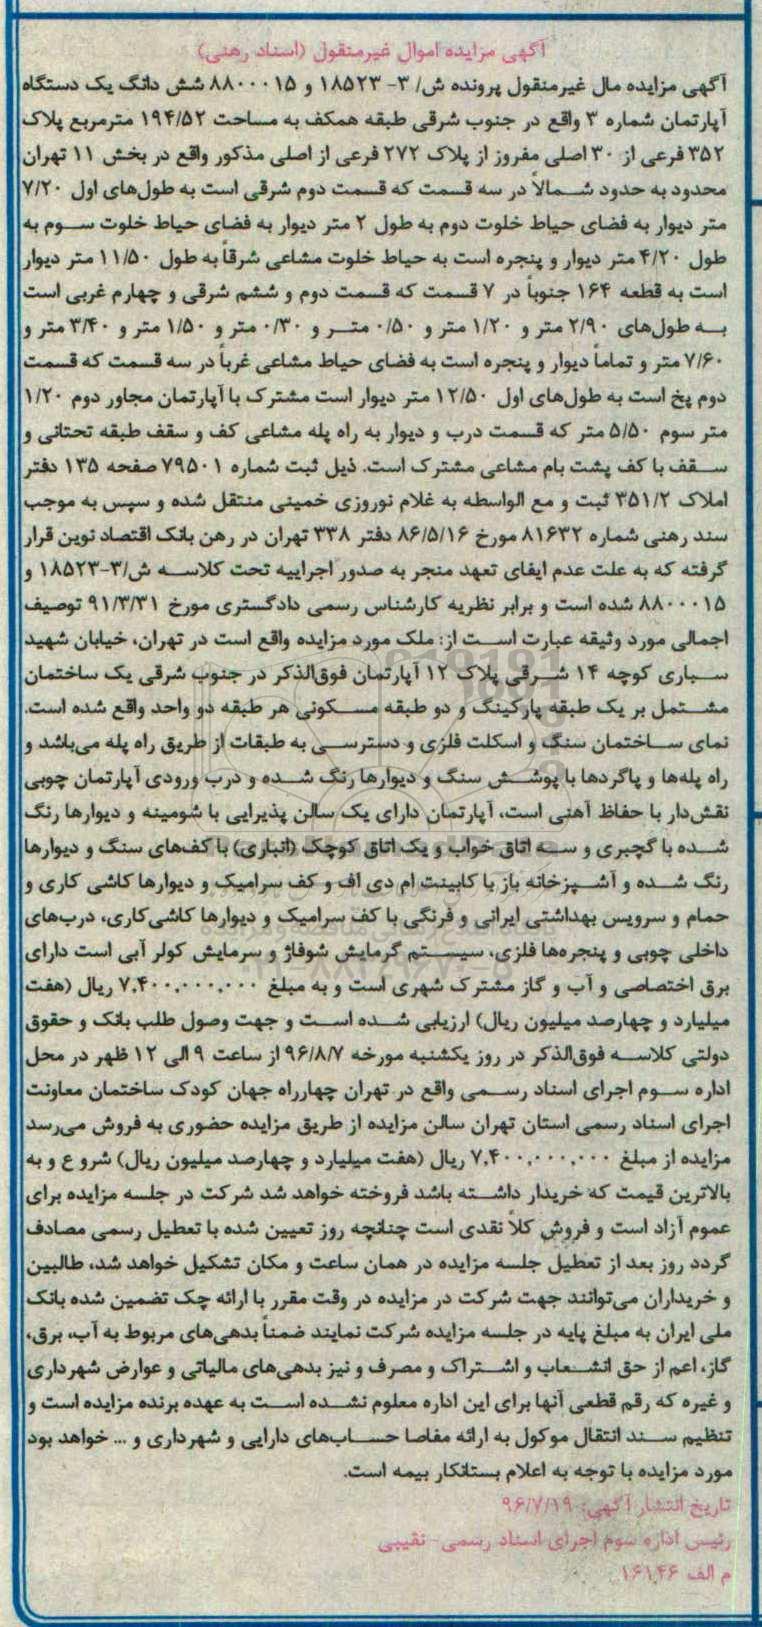 آگهی مزایده اموال غیرمنقول (اسناد رهنی)
آگهی مزایده مال غیرمنقول پرونده ش/ ۳- ۱۸۵۲۳ و ۸۸۰۰۰۱۵ شش دانگ یک دستگاه
آپارتمان شماره ۳ واقع در جنوب شرقی طبقه همکف به مساحت ۱۹۴/۵۲ مترمربع پلاک
۳۵۲ فرعی از ۳۰ اصلی مفروز از پلاک ۲۷۲ فرعی از اصلی مذکور واقع در بخش ۱۱ تهران
محدود به حدود شمالاً در سه قسمت که قسمت دوم شرقی است به طول‌های اول ۷/۲۰
متر دیوار به فضای حیاط خلوت دوم به طول ۲ متر دیوار به فضای حیاط خلوت سوم به
طول ۴/۲۰ متر دیوار و پنجره است به حیاط خلوت مشاعی شرقاً به طول ۱۱/۵۰ متر دیوار
است به قطعه ۱۶۴ جنوباً در ۷ قسمت که قسمت دوم و ششم شرقی و چهارم غربی است
به طول‌های ۲/۹۰ متر و ۱/۲۰ متر و ۰/۵۰ متر و ۰/۳۰ متر و ۱/۵۰ متر و ۳/۴۰ متر و
۷/۶۰ متر و تماماً دیوار و پنجره است به فضای حیاط مشاعی غرباً در سه قسمت که قسمت
دوم پخ است به طول‌های اول ۱۲/۵۰ متر دیوار است مشترک با آپارتمان مجاور دوم ۱/۲۰
متر سوم ۵/۵۰ متر که قسمت درب و دیوار به راه پله مشاعی کف و سقف طبقه تحتانی و
سقف با کف پشت بام مشاعی مشترک است. ذیل ثبت شماره ۷۹۵۰۱ صفحه ۱۳۵ دفتر
املاک ۳۵۱/۲ ثبت و مع الواسطه به غلام نوروزی خمینی منتقل شده و سپس به موجب
سند رهنی شماره ۸۱۶۳۲ مورخ ۸۶/۵/۱۶ دفتر ۳۳۸ تهران در رهن بانک اقتصاد نوین قرار
گرفته که به علت عدم ایفای تعهد منجر به صدور اجراییه تحت کلاسه ش/۳-۱۸۵۲۳ و
۸۸۰۰۰۱۵ شده است و برابر نظریه کارشناس رسمی دادگستری مورخ ۹۱/۳/۳۱ توصیف
اجمالی مورد وثیقه عبارت است از: ملک مورد مزایده واقع است در تهران، خیابان شهید
سباری کوچه ۱۴ شرقی پلاک ۱۲ آپارتمان فوق‌الذکر در جنوب شرقی یک ساختمان
مشتمل بر یک طبقه پارکینگ و دو طبقه مسکونی هر طبقه دو واحد واقع شده است.
نمای ساختمان سنگ و اسکلت فلزی و دسترسی به طبقات از طریق راه پله می‌باشد و
راه پله‌ها و پاگردها با پوشش سنگ و دیوارها رنگ شده و درب ورودی آپارتمان چوبی
نقش‌دار با حفاظ آهنی است، آپارتمان دارای یک سالن پذیرایی با شومینه و دیوارها رنگ
شده با گچبری و سه اتاق خواب و یک اتاق کوچک (انباری) با کف‌های سنگ و دیوارها
رنگ شده و آشپزخانه باز با کابینت ام دی اف و کف سرامیک و دیوارها کاشی کاری و
حمام و سرویس بهداشتی ایرانی و فرنگی با کف سرامیک و دیوارها کاشی‌کاری، درب‌های
داخلی چوبی و پنجره‌ها فلزی، سیستم گرمایش شوفاژ و سرمایش کولر آبی است دارای
برق اختصاصی و آب و گاز مشترک شهری است و به مبلغ ۷,۴۰۰,۰۰۰,۰۰۰ ریال (هفت
میلیارد و چهارصد میلیون ریال) ارزیابی شده است و جهت وصول طلب بانک و حقوق
دولتی کلاسه فوق‌الذکر در روز یکشنبه مورخه ۹۶/۸/۷ از ساعت ۹ الی ۱۲ ظهر در محل
اداره سوم اجرای اسناد رسمی واقع در تهران چهارراه جهان کودک ساختمان معاونت
اجرای اسناد رسمی استان تهران سالن مزایده از طریق مزایده حضوری به فروش می‌رسد
مزایده از مبلغ ۷,۴۰۰,۰۰۰,۰۰۰ ریال (هفت میلیارد و چهارصد میلیون ریال) شروع و به
بالاترین قیمت که خریدار داشته باشد فروخته خواهد شد شرکت در جلسه مزایده برای
عموم آزاد است و فروش کلاً نقدی است چنانچه روز تعیین شده با تعطیل رسمی مصادف
گردد روز بعد از تعطیل جلسه مزایده در همان ساعت و مکان تشکیل خواهد شد، طالبین
و خریداران می‌توانند جهت شرکت در مزایده در وقت مقرر با ارائه چک تضمین شده بانک
ملی ایران به مبلغ پایه در جلسه مزایده شرکت نمایند ضمناً بدهی‌های مربوط به آب، برق،
گاز، اعم از حق انشعاب و اشتراک و مصرف و نیز بدهی‌های مالیاتی و عوارض شهرداری
و غیره که رقم قطعی آنها برای این اداره معلوم نشده است به عهده برنده مزایده است و
تنظیم سند انتقال موکول به ارائه مفاصا حساب‌های دارایی و شهرداری و ... خواهد بود
مورد مزایده با توجه به اعلام بستانکار بیمه است.
تاریخ انتشار آگهی: ۹۶/۷/۱۹
رئیس اداره سوم اجرای اسناد رسمی- نقیبی
م الف ۱۶۱۴۶